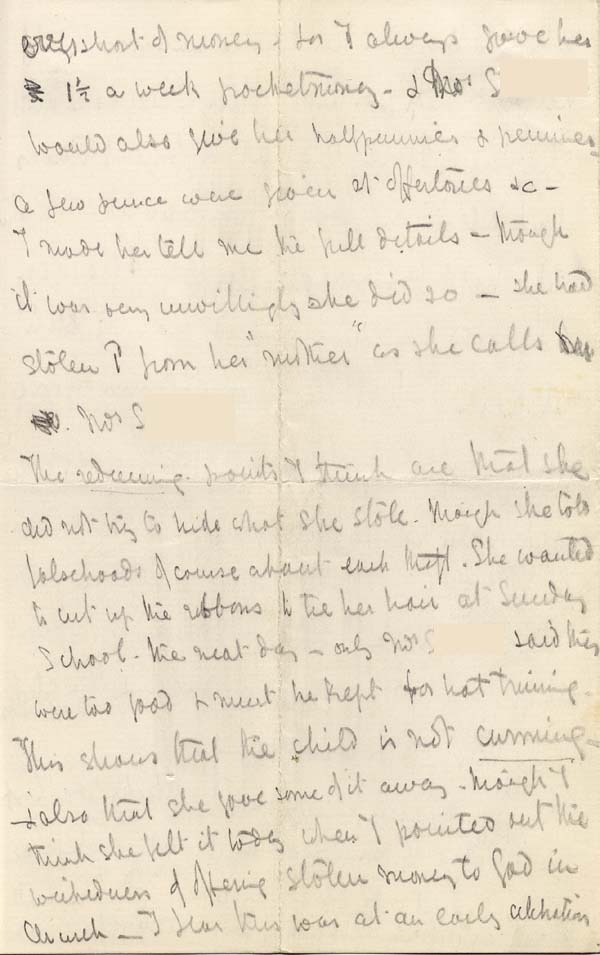 very short of money - for I always gave her
1½ a week pocketmoney - & Mrs S
would also give her halfpennies & pennies -
a few pence were given at offertories &c -
I made her tell me the full details - though
it was very unwillingly she did so - she had
stolen 1d from her "mother" as she calls her
Mrs S
The redeeming points I think are that she
did not try to hide what she stole. though she told
falsehoods of course about each theft. She wanted
to cut up the ribbons to tie her hair at Sunday
School - the next day - only Mrs S said they
were too good & must be kept for hat trimming -
This shows that the child is not cunning -
& also that she gave some of it away - though I
think she felt it today when I pointed out the
wickedness of offering stolen money to God in
Church - I fear this was at an early celebration